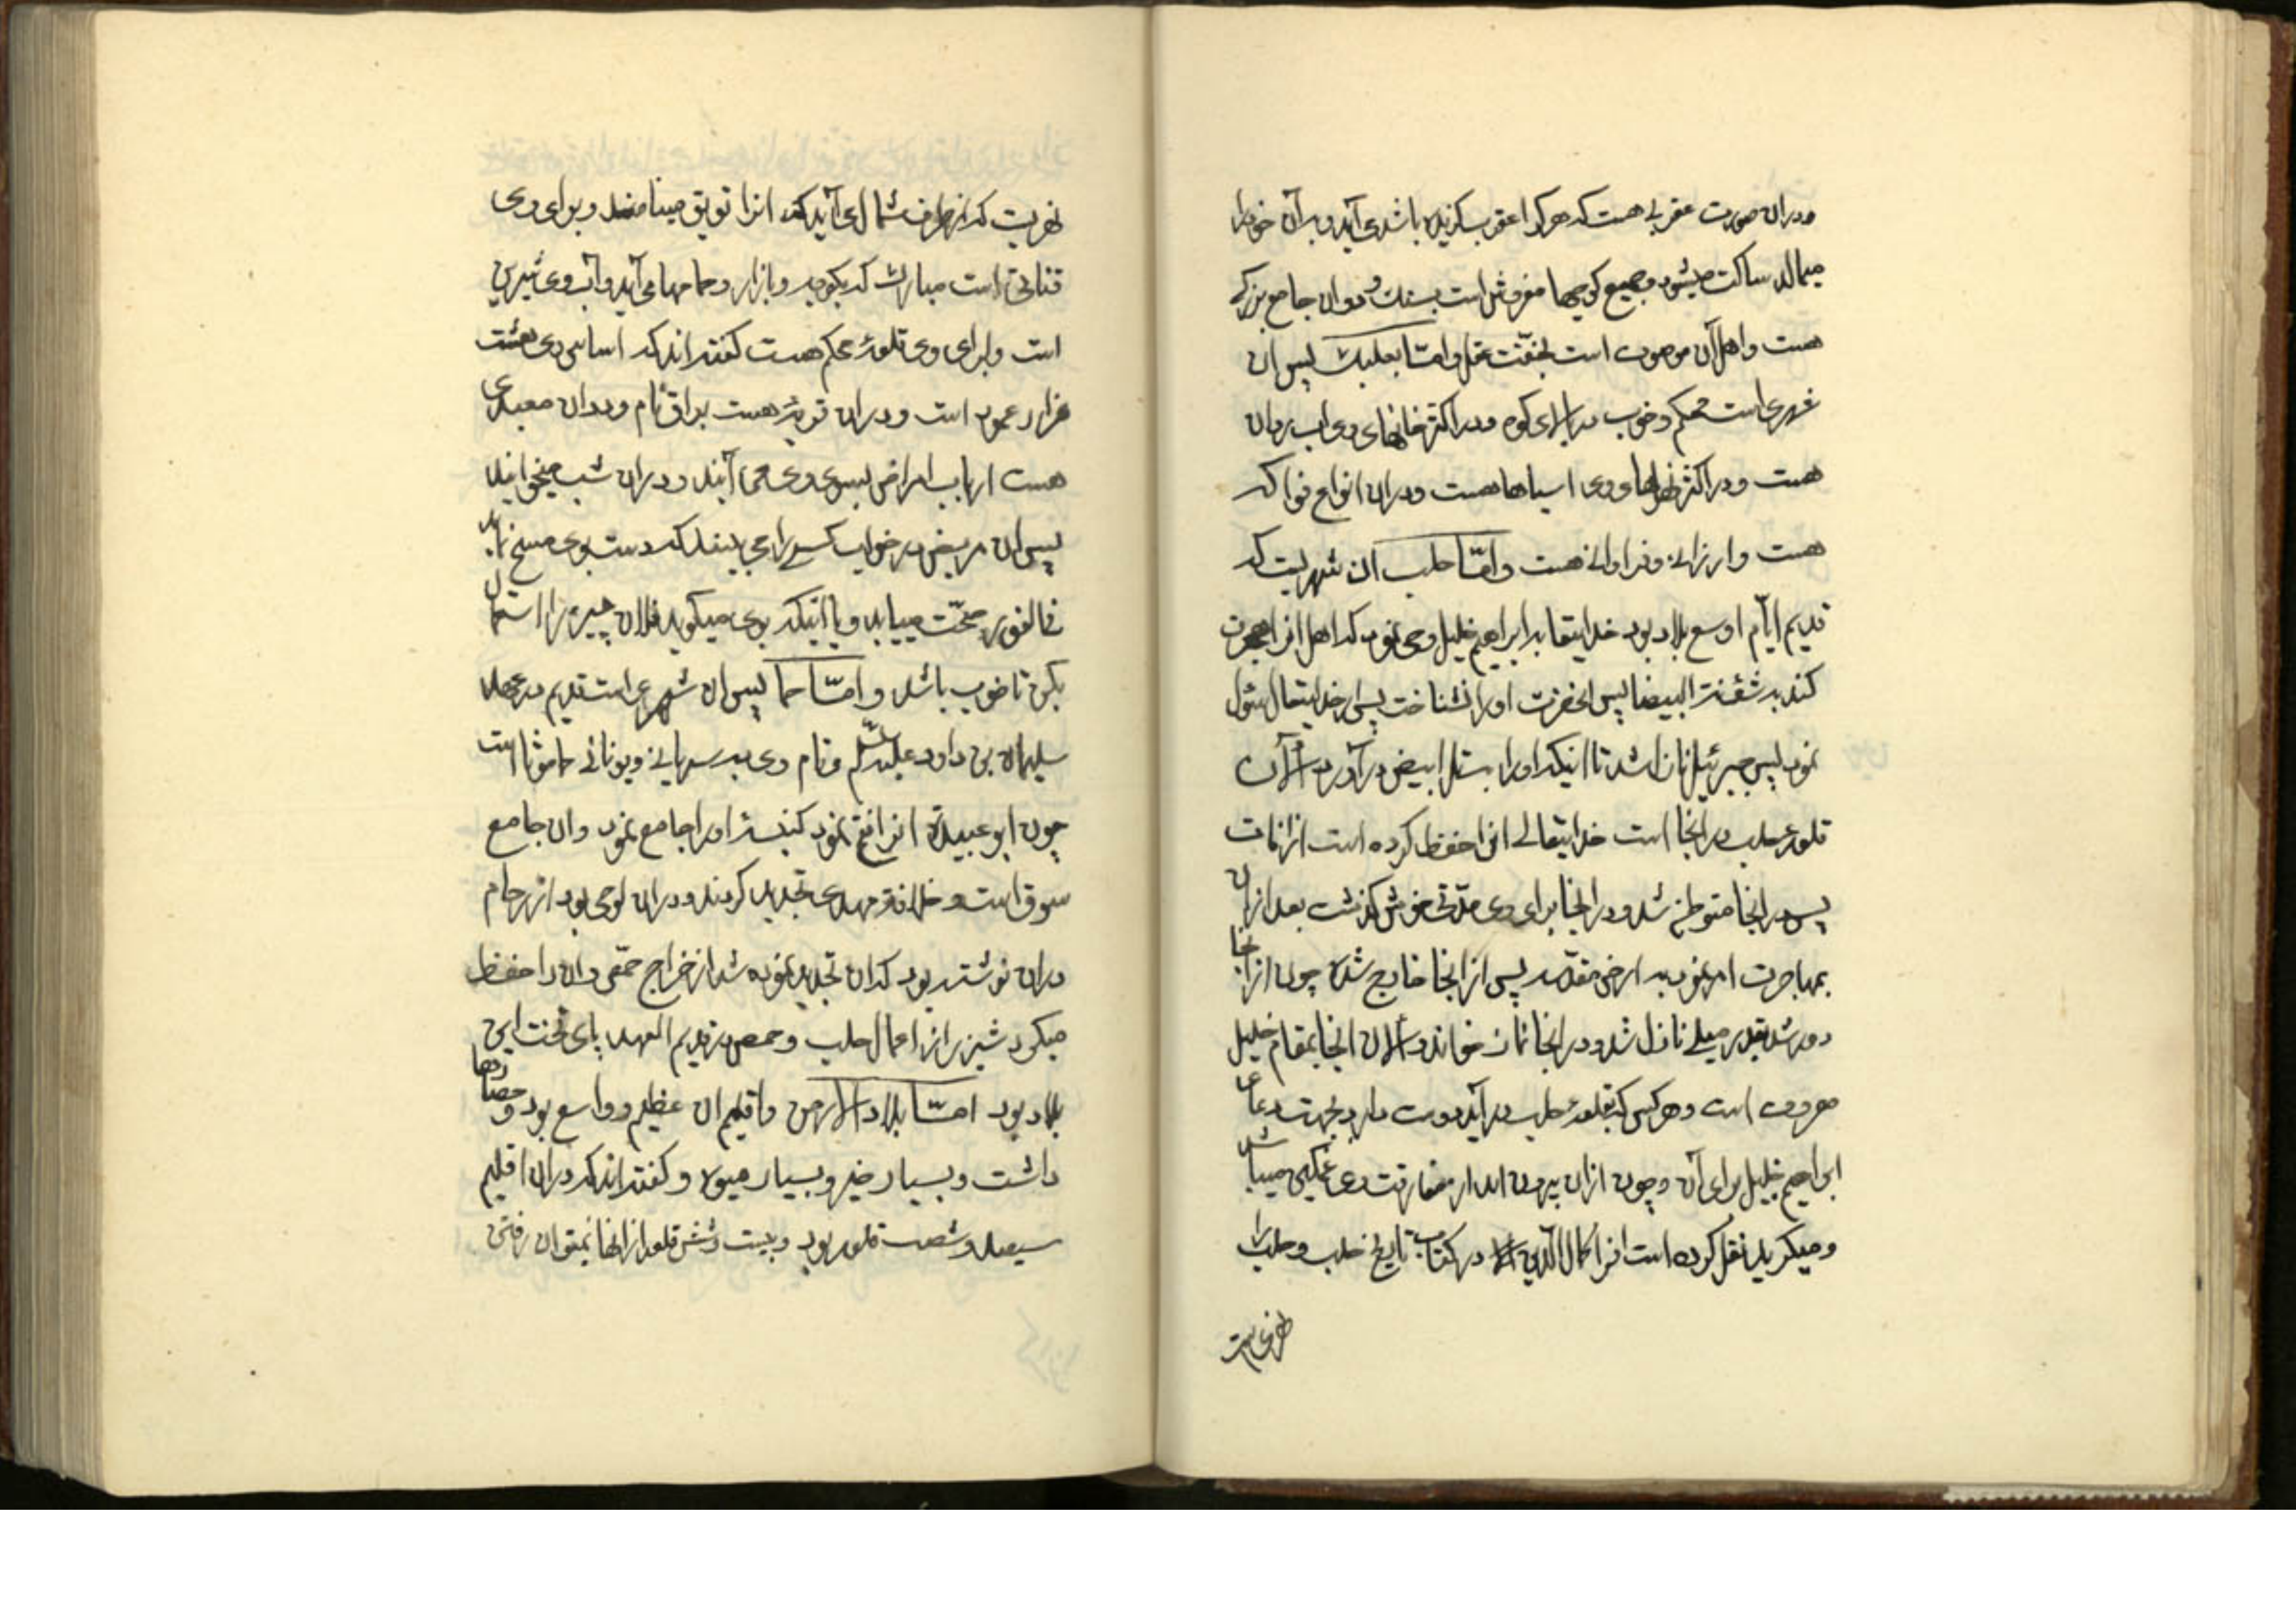 ودران صورت عقربی هست که هرکرا عقرب بگزیده باشد می آید و بر آن خود را
میمالد ساکت میشود و جمیع کوچها مفروش است بسنك و دران جامع بزرکی
هست و اهل آن موصوف است بخفّت عقل و امّا بعلبك پس ان
شهری است محکم و خوب در برابر کوه و در اکثر خانهای وی اب روان
هست و در اکثر نهرهای وی اسیاها هست ودران انواع فواکه
هست و ارزانی و فراوانی هست و امّا حلب ان شهریست که
قدیم ایّام اوسع بلاد بود خدایتعا به ابراهیم خلیل وحی نمود که اهل انرا هجرت
کند به شقنة البیضا پس انحضرت اورا نشناخت پس از خدایتعال سئول
نمود پس جبرئیل نازل شد تا اینکه اورا بتل ابیض در آورد الآن
قلوء حلب در انجا است خدایتعالی انرا حفظ کرده است از افات
پس در انجا متوطن شد و در انجا برای وی مدّتی خوش گذشت بعد ازان
بمهاجرت امر نمود به ارض مقدّسه پس از انجا خارج شده چون ازانجا
دور شد بقدر میلی نازل شد و در انجا نماز خواند و الان انجا بمقام خلیل
معروف است و هرکس که بقلوء حلب در آید دوست دارد بجهت دعای
ابراهیم خلیل برای آن و چون ازان بیرون اید از مفارقت وی غمکین میباشد
و میکرید نقل کرده است انرا کمال الدّین در کتاب تاریخ حلب و حلب را
نهریست که از طرف شمال می آید که انرا تویق مینامند و برای وی
قناتی است مبارك که بکوچه و بازار و حمامها می آید و آب وی شیرین
است و برای وی قلوءٔ محکم هست کفته اند که اساس وی هشت
هزار عمود است و دران قریهٔ هست براق نام و دران معبدی
هست ارباب امراض بسوی وی می آیند و دران شب میخوابند
پس ان مریض در خواب کسی را می بیند که دست بوی مسح نماید
فی الفور صحّت مییابد و یا اینکه بوی میکوید فلان چیز را استعمال
بکن تا خوب باشد و امّا حما پس ان شهری است قدیم در عهد
سلیمان بن داود علیه السلم و نام وی به سریانی و یونانی حاموثا است
چون ابو عبیده انرا فتح نمود کنیسه اورا جامع نمود وان جامع
سوق است و خلافة مهدی تجدید کردند و دران لوحی بود از رخام
دران نوشته بود که ان تجدید نموده شد از خراج حمّص وان را حفظ
میکرد شیزر از اعمال حلب و حمص در قدیم العهد پای تخت این
بلاد بود امّا بلاد الارمن و اقلیم ان عظیم و واسع بود و حصارها
داشت و بسیار خیر و بسیار میوه و کفته اند که دران اقلیم
سیصد و شصت قلوه بود و بیست و شش قلعه از انها نمیتوان رفتن